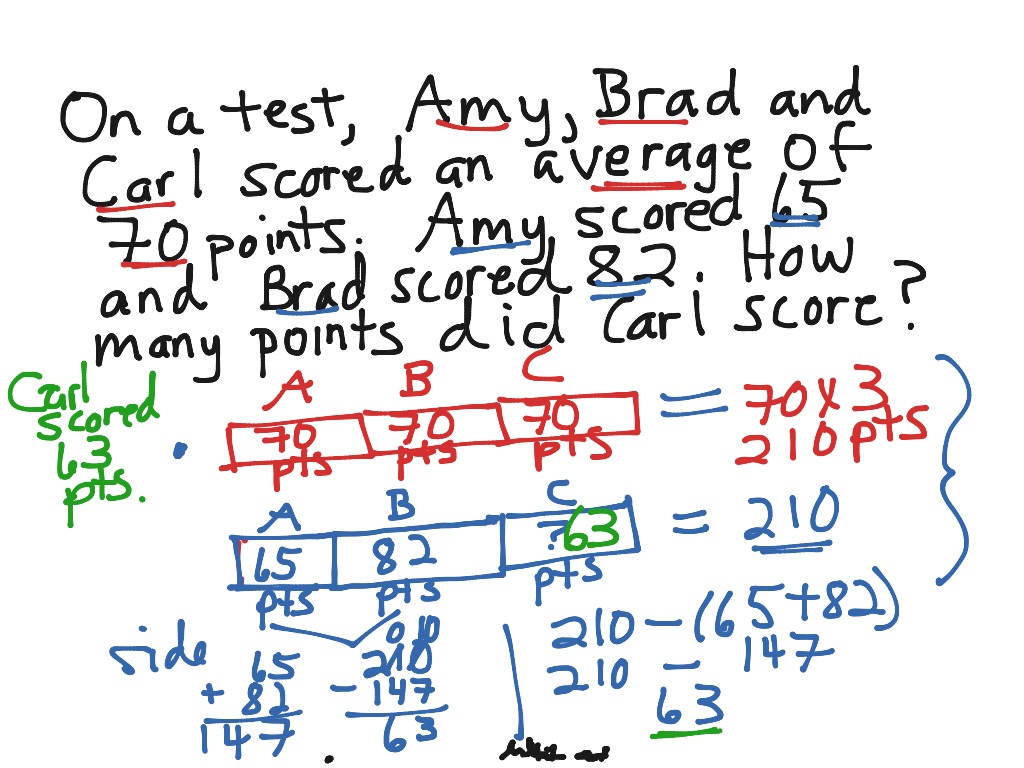 On a test, Amy, Brad and
Carl scored an average of
70 points. Amy scored 65
and Brad scored 82. How
many points did Carl score?
Carl
scored
63
pts.
A B C
70 70 70 = 70 x 3
pts pts pts 210 pts
A B C
65 82 ? 63 = 210
pts pts pts
side
65
+ 82
147
0 10
210
- 147
63
210 - (65 + 82)
210 - 147
63